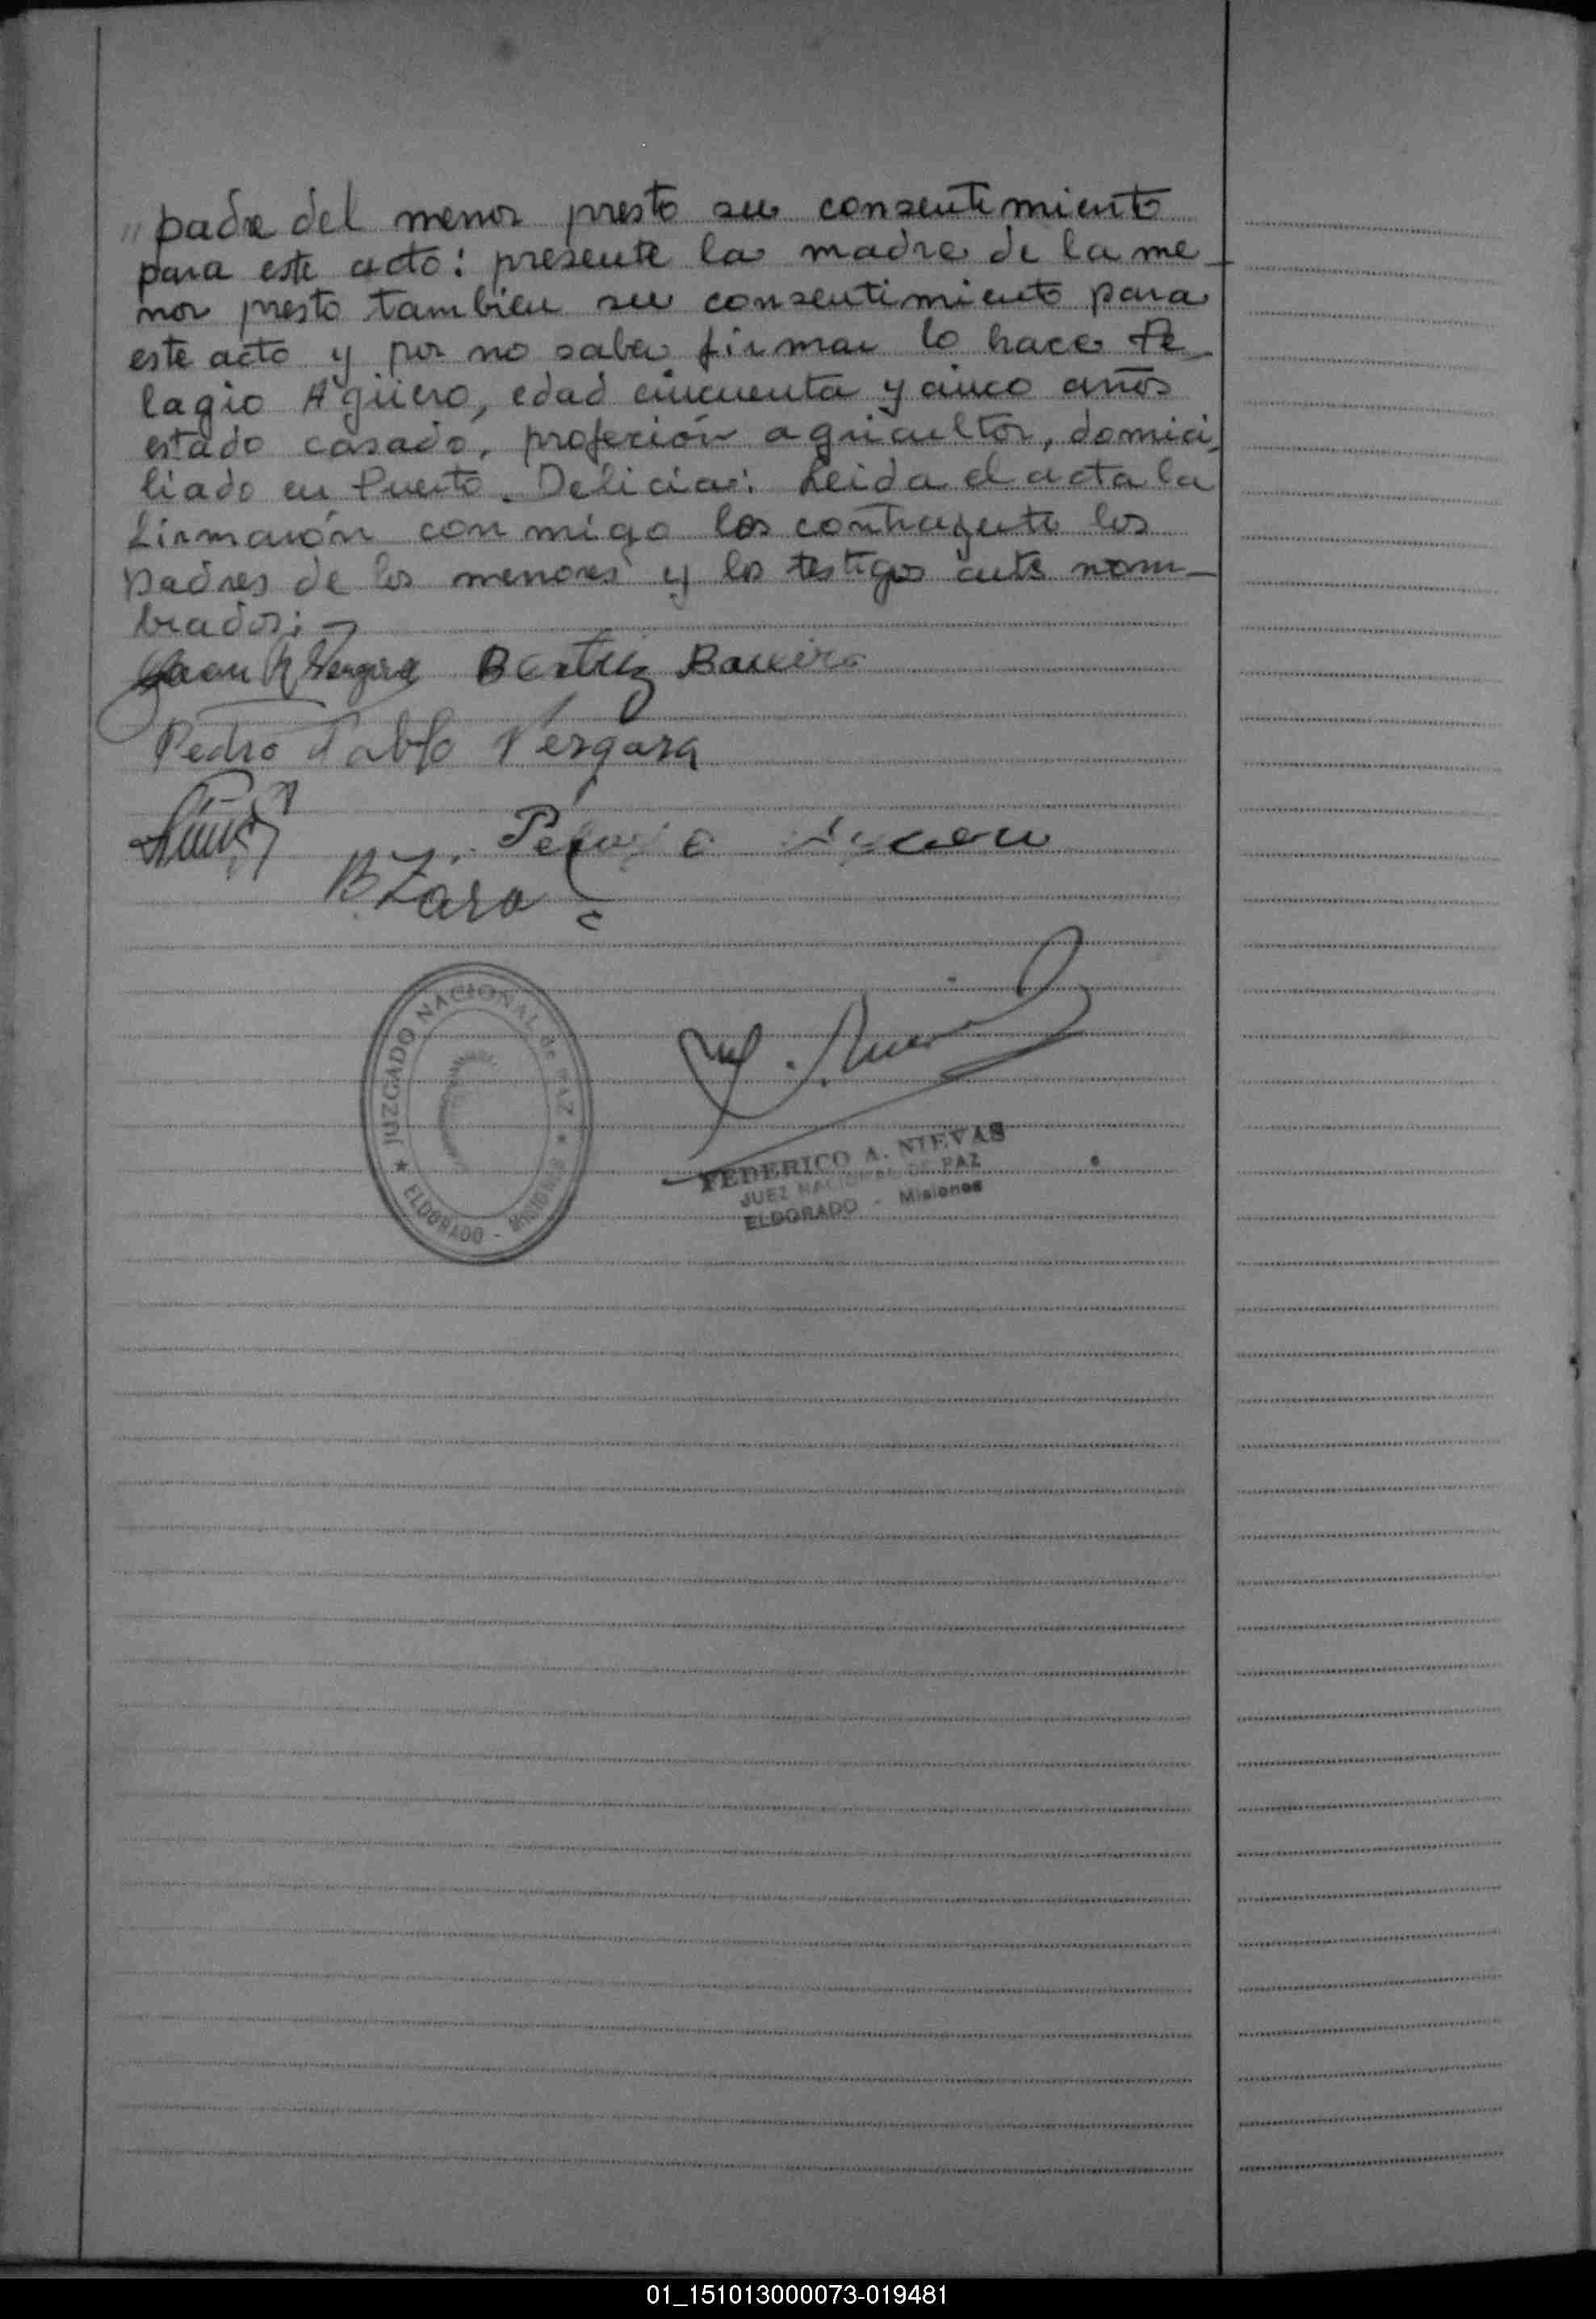 " padre del menor presto su consentimiento
para este acto: presente la madre de la me_
nor presto tambien su consentimiento para
este acto y por no saber firmar lo hace Pe_
lagio Agüero, edad cincuenta y cinco años
estado casado, profexión agricultor, domici_
liado en Puerto Delicia: Leida el acta la
firmarón con migo los contrayente los
padres de los menores y los testigos ante nom_
brados:
Juan R Vergara Beatriz
Pedro Pablo Vergara
Pelagio
B. Zara
JUZGADO NACIONAL de PAZ
★ ELDORADO - MISIONES ★
FEDERICO A. NIEVAS
JUEZ NACIONAL DE PAZ
ELDORADO - Misiones
01_151013000073-019481